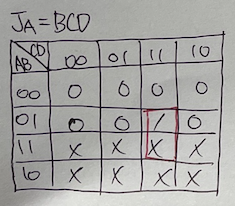 JA=BCD
AB CD 00 01 11 10
00 0 0 0 0
01 0 0 1 0
11 X X X X
10 X X X X